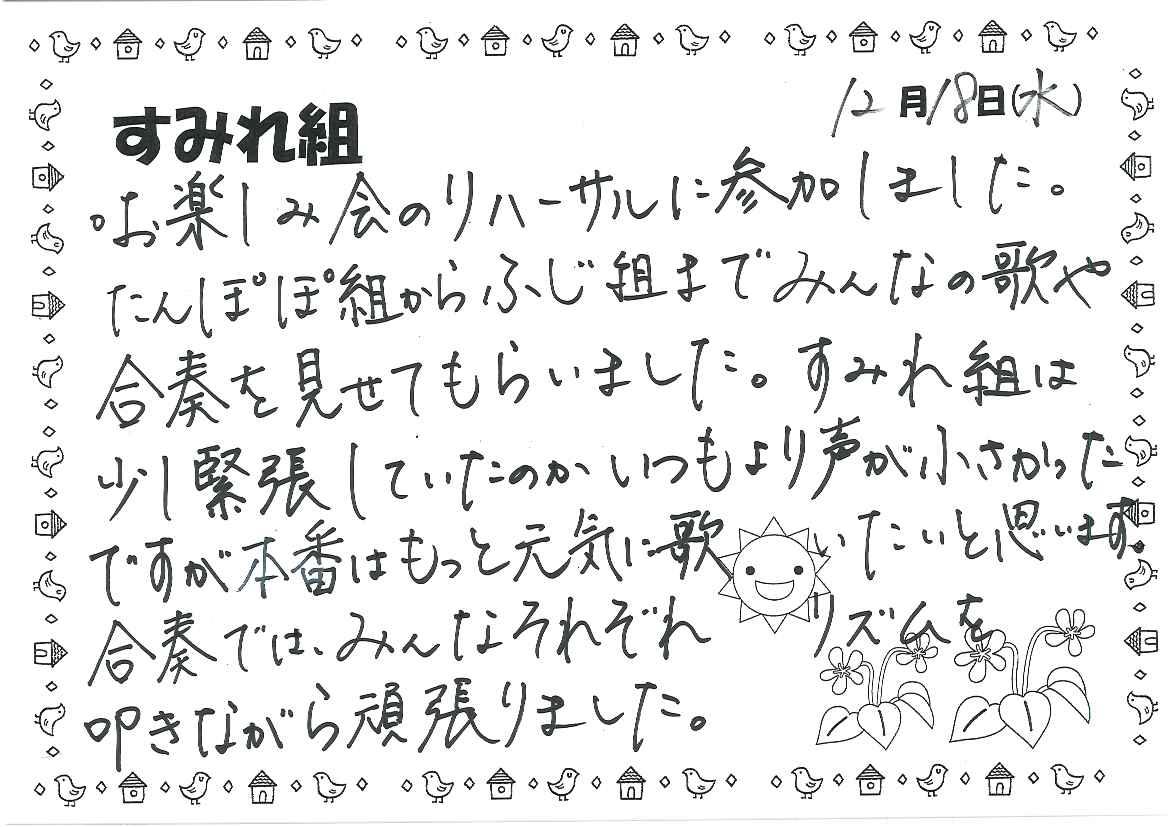 12月18日(水)
すみれ組
○お楽しみ会のリハーサルに参加しました。
たんぽぽ組からふじ組までみんなの歌や
合奏を見せてもらいました。すみれ組は
少し緊張していたのかいつもより声が小さかった
ですが本番はもっと元気に歌いたいと思います。
合奏では、みんなそれぞれリズムを
叩きながら頑張りました。